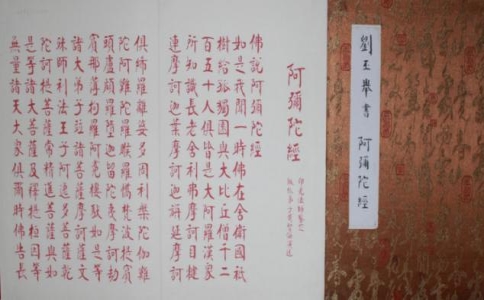 劉王舉書 阿彌陀經
阿彌陀經
佛說阿彌陀經
如是我聞一時佛在舍衛國祇
樹給孤獨園與大比丘僧千二
百五十人俱皆是大阿羅漢衆
所知識長老舍利弗摩訶目犍
連摩訶迦葉摩訶迦旃延摩訶
俱絺羅離婆多周利槃陀伽難
陀阿難陀羅睺羅憍梵波提賓
頭盧頗羅墮迦留陀夷摩訶劫
賓那薄拘羅阿㝹樓馱如是等
諸大弟子並諸菩薩摩訶薩文
殊師利法王子阿逸多菩薩乾
陀訶提菩薩常精進菩薩與如
是等諸大菩薩及釋提桓因等
無量諸天大衆俱爾時佛告長